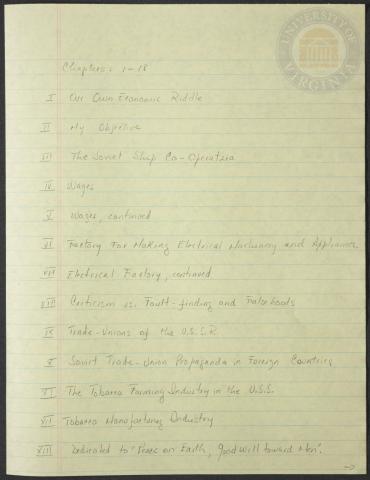 UNIVERSITY OF VIRGINIA
Chapters: 1-18
I Our Own Economic Riddle
II My Objective
III The Soviet Shop Co-Operative
IV Wages
V Wages, continued
VI Factory For Making Electrical Machinery and Appliances
VII Electrical Factory, continued
VIII Criticism vs. Fault-finding and Falsehoods
IX Trade-Unions of the U.S.S.R.
X Soviet Trade-Union Propaganda in Foreign Countries
XI The Tobacco Farming Industry in the U.S.S.
XII Tobacco Manufacturing Industry
XIII Dedicated to "Peace on Earth, good will toward Men".